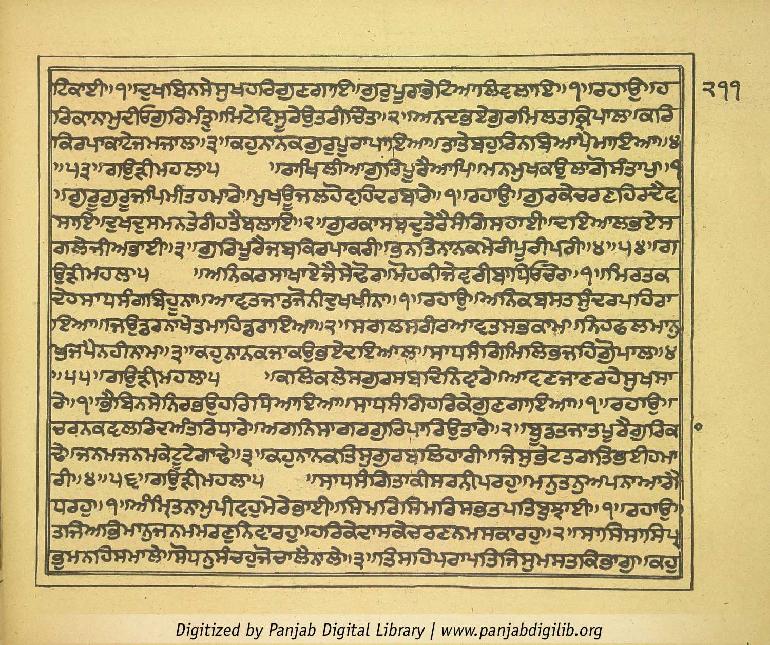 ਟਿਕਾਈ॥੧॥ਦੁਖਬਿਨਸੇਸੁਖਹਰਿਗੁਣਗਾਇ॥ਗੁਰੁਪੂਰਾਭੇਟਿਆਲਿਵਲਾਇ॥੧॥ਰਹਾਉ॥ਹ
੨੧੧
ਰਿਕਾਨਾਮੁਦੀਓਗੁਰਿਮੰਤ੍ਰੁ॥ਮਿਟੇਵਿਸੂਰੇਉਤਰੀਚਿੰਤ॥੨॥ਅਨਦਭਏਗੁਰਮਿਲਤਕ੍ਰਿਪਾਲ॥ਕਰਿ
ਕਿਰਪਾਕਾਟੇਜਮਜਾਲ॥੩॥ਕਹੁਨਾਨਕਗੁਰੁਪੂਰਾਪਾਇਆ॥ਤਾਤੇਬਹੁਰਿਨਬਿਆਪੈਮਾਇਆ॥੪
॥੫੩॥ਗਉੜੀਮਹਲਾ੫ ॥ਰਾਖਿਲੀਆਗੁਰਿਪੂਰੈਆਪਿ॥ਮਨਮੁਖਕਉਲਾਗੋਸੰਤਾਪੁ॥੧
॥ਗੁਰੂਗੁਰੂਜਪਿਮੀਤਹਮਾਰੇ॥ਮੁਖਊਜਲਹੋਵਹਿਦਰਬਾਰੇ॥੧॥ਰਹਾਉ॥ਗੁਰਕੇਚਰਣਹਿਰਦੈਵ
ਸਾਇ॥ਦੁਖਦੁਸਮਨਤੇਰੀਹਤੈਬਲਾਇ॥੨॥ਗੁਰਕਾਸਬਦੁਤੇਰੈਸੰਗਿਸਹਾਈ॥ਦਇਆਲਭਏਸ
ਗਲੇਜੀਅਭਾਈ॥੩॥ਗੁਰਿਪੂਰੈਜਬਕਿਰਪਾਕਰੀ॥ਭਨਤਿਨਾਨਕਮੇਰੀਪੂਰੀਪਰੀ॥੪॥੫੪॥ਗ
ਉੜੀਮਹਲਾ੫ ॥ਅਨਿਕਰਸਾਖਾਏਜੈਸੇਢੋਰ॥ਮੋਹਕੀਜੇਵਰੀਬਾਧਿਓਚੋਰ॥੧॥ਮਿਰਤਕ
ਦੇਹਸਾਧਸੰਗਬਿਹੂਨਾ॥ਆਵਤਜਾਤਜੋਨੀਦੁਖਖੀਨਾ॥੧॥ਰਹਾਉ॥ਅਨਿਕਬਸਤ੍ਰਸੁੰਦਰਪਹਿਰਾ
ਇਆ॥ਜਿਉਡਰਨਾਖੇਤਮਾਹਿਡਰਾਇਆ॥੨॥ਸਗਲਸਰੀਰਆਵਤਸਭਕਾਮ॥ਨਿਹਫਲਮਾਨੁ
ਖੁਜਪੈਨਹੀਨਾਮ॥੩॥ਕਹੁਨਾਨਕਜਾਕਉਭਏਦਇਆਲਾ॥ਸਾਧਸੰਗਿਮਿਲਿਭਜਹਿਗੋੁਪਾਲਾ॥੪
॥੫੫॥ਗਉੜੀਮਹਲਾ੫ ॥ਕਲਿਕਲੇਸਗੁਰਸਬਦਿਨਿਵਾਰੇ॥ਆਵਣਜਾਣਰਹੇਸੁਖਸਾ
ਰੇ॥੧॥ਭੈਬਿਨਸੇਨਿਰਭਉਹਰਿਧਿਆਇਆ॥ਸਾਧਸੰਗਿਹਰਿਕੇਗੁਣਗਾਇਆ॥੧॥ਰਹਾਉ॥
ਚਰਨਕਵਲਰਿਦਅੰਤਰਿਧਾਰੇ॥ਅਗਨਿਸਾਗਰਗੁਰਿਪਾਰਿਉਤਾਰੇ॥੨॥ਬੂਡਤਜਾਤਪੂਰੈਗੁਰਿਕ
ਢੇ॥ਜਨਮਜਨਮਕੇਟੂਟੇਗਾਢੇ॥੩॥ਕਹੁਨਾਨਕਤਿਸੁਗੁਰਬਲਿਹਾਰੀ॥ਜਿਸੁਭੇਟਤਗਤਿਭਈਹਮਾ
ਰੀ॥੪॥੫੬॥ਗਉੜੀਮਹਲਾ੫ ॥ਸਾਧਸੰਗਿਤਾਕੀਸਰਨੀਪਰਹੁ॥ਮਨੁਤਨੁਅਪਨਾਆਗੈ
ਧਰਹੁ॥੧॥ਅੰਮ੍ਰਿਤਨਾਮੁਪੀਵਹੁਮੇਰੇਭਾਈ॥ਸਿਮਰਿਸਿਮਰਿਸਭਤਪਤਿਬੁਝਾਈ॥੧॥ਰਹਾਉ॥
ਤਜਿਅਭਿਮਾਨੁਜਨਮਮਰਣੁਨਿਵਾਰਹੁ॥ਹਰਿਕੇਦਾਸਕੇਚਰਣਨਮਸਕਾਰਹੁ॥੨॥ਸਾਸਿਸਾਸਿਪ੍ਰ
ਭੁਮਨਹਿਸਮਾਲੇ॥ਸੋਧਨੁਸੰਚਹੁਜੋਚਾਲੈਨਾਲੇ॥੩॥ਤਿਸਹਿਪਰਾਪਤਿਜਿਸੁਮਸਤਕਿਭਾਗੁ॥ਕਹੁ
Digitized by Panjab Digital Library | www.panjabdigilib.org